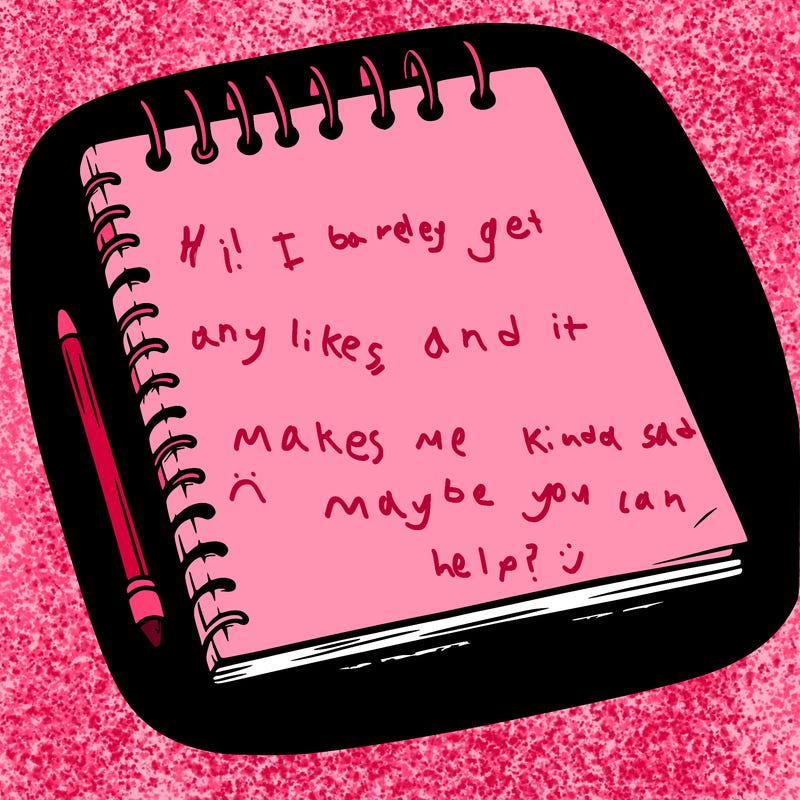 Hi! I bareley get
any likes, and it
makes me kinda sad
:( maybe you can
help? :)